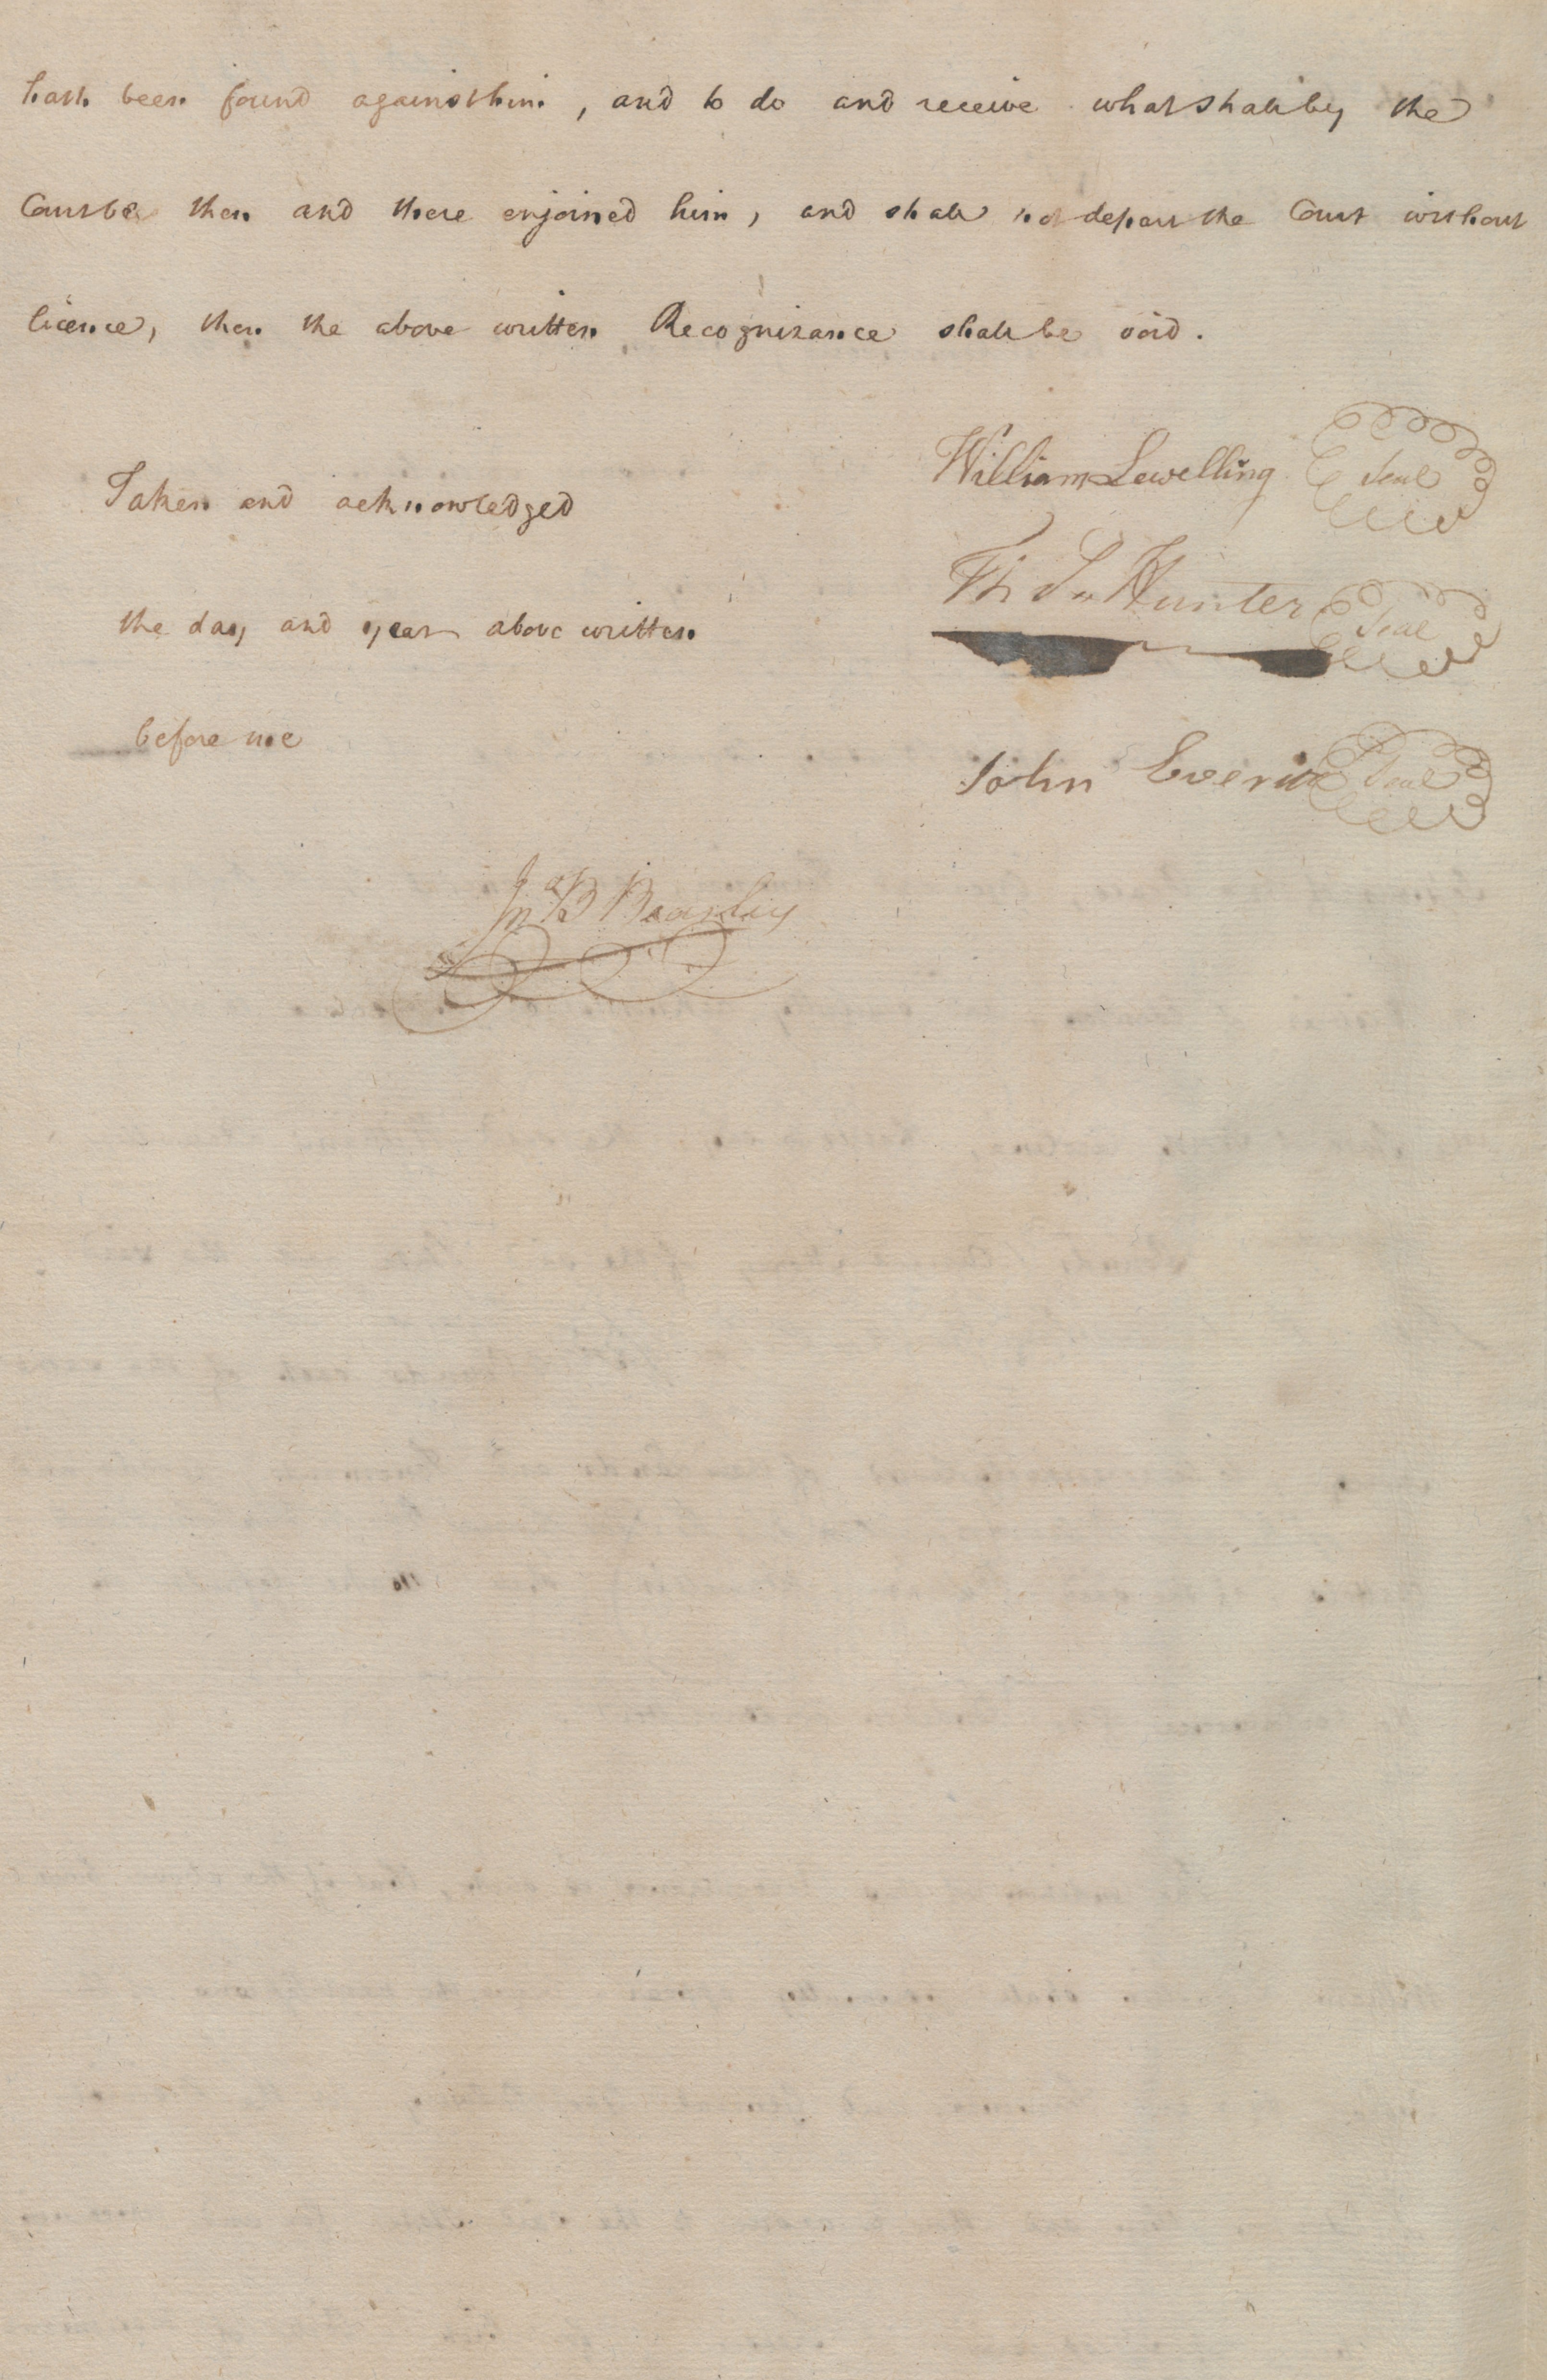 hath been found against him, and to do and receive what shall by the
Court be then and there enjoined him, and shall not depart the Court without
licence, then the above written Recognizance shall be void.
William Lewelling Seal
Taken and acknowledged
Hunter Seal
the day and year above written
before me
John Seal